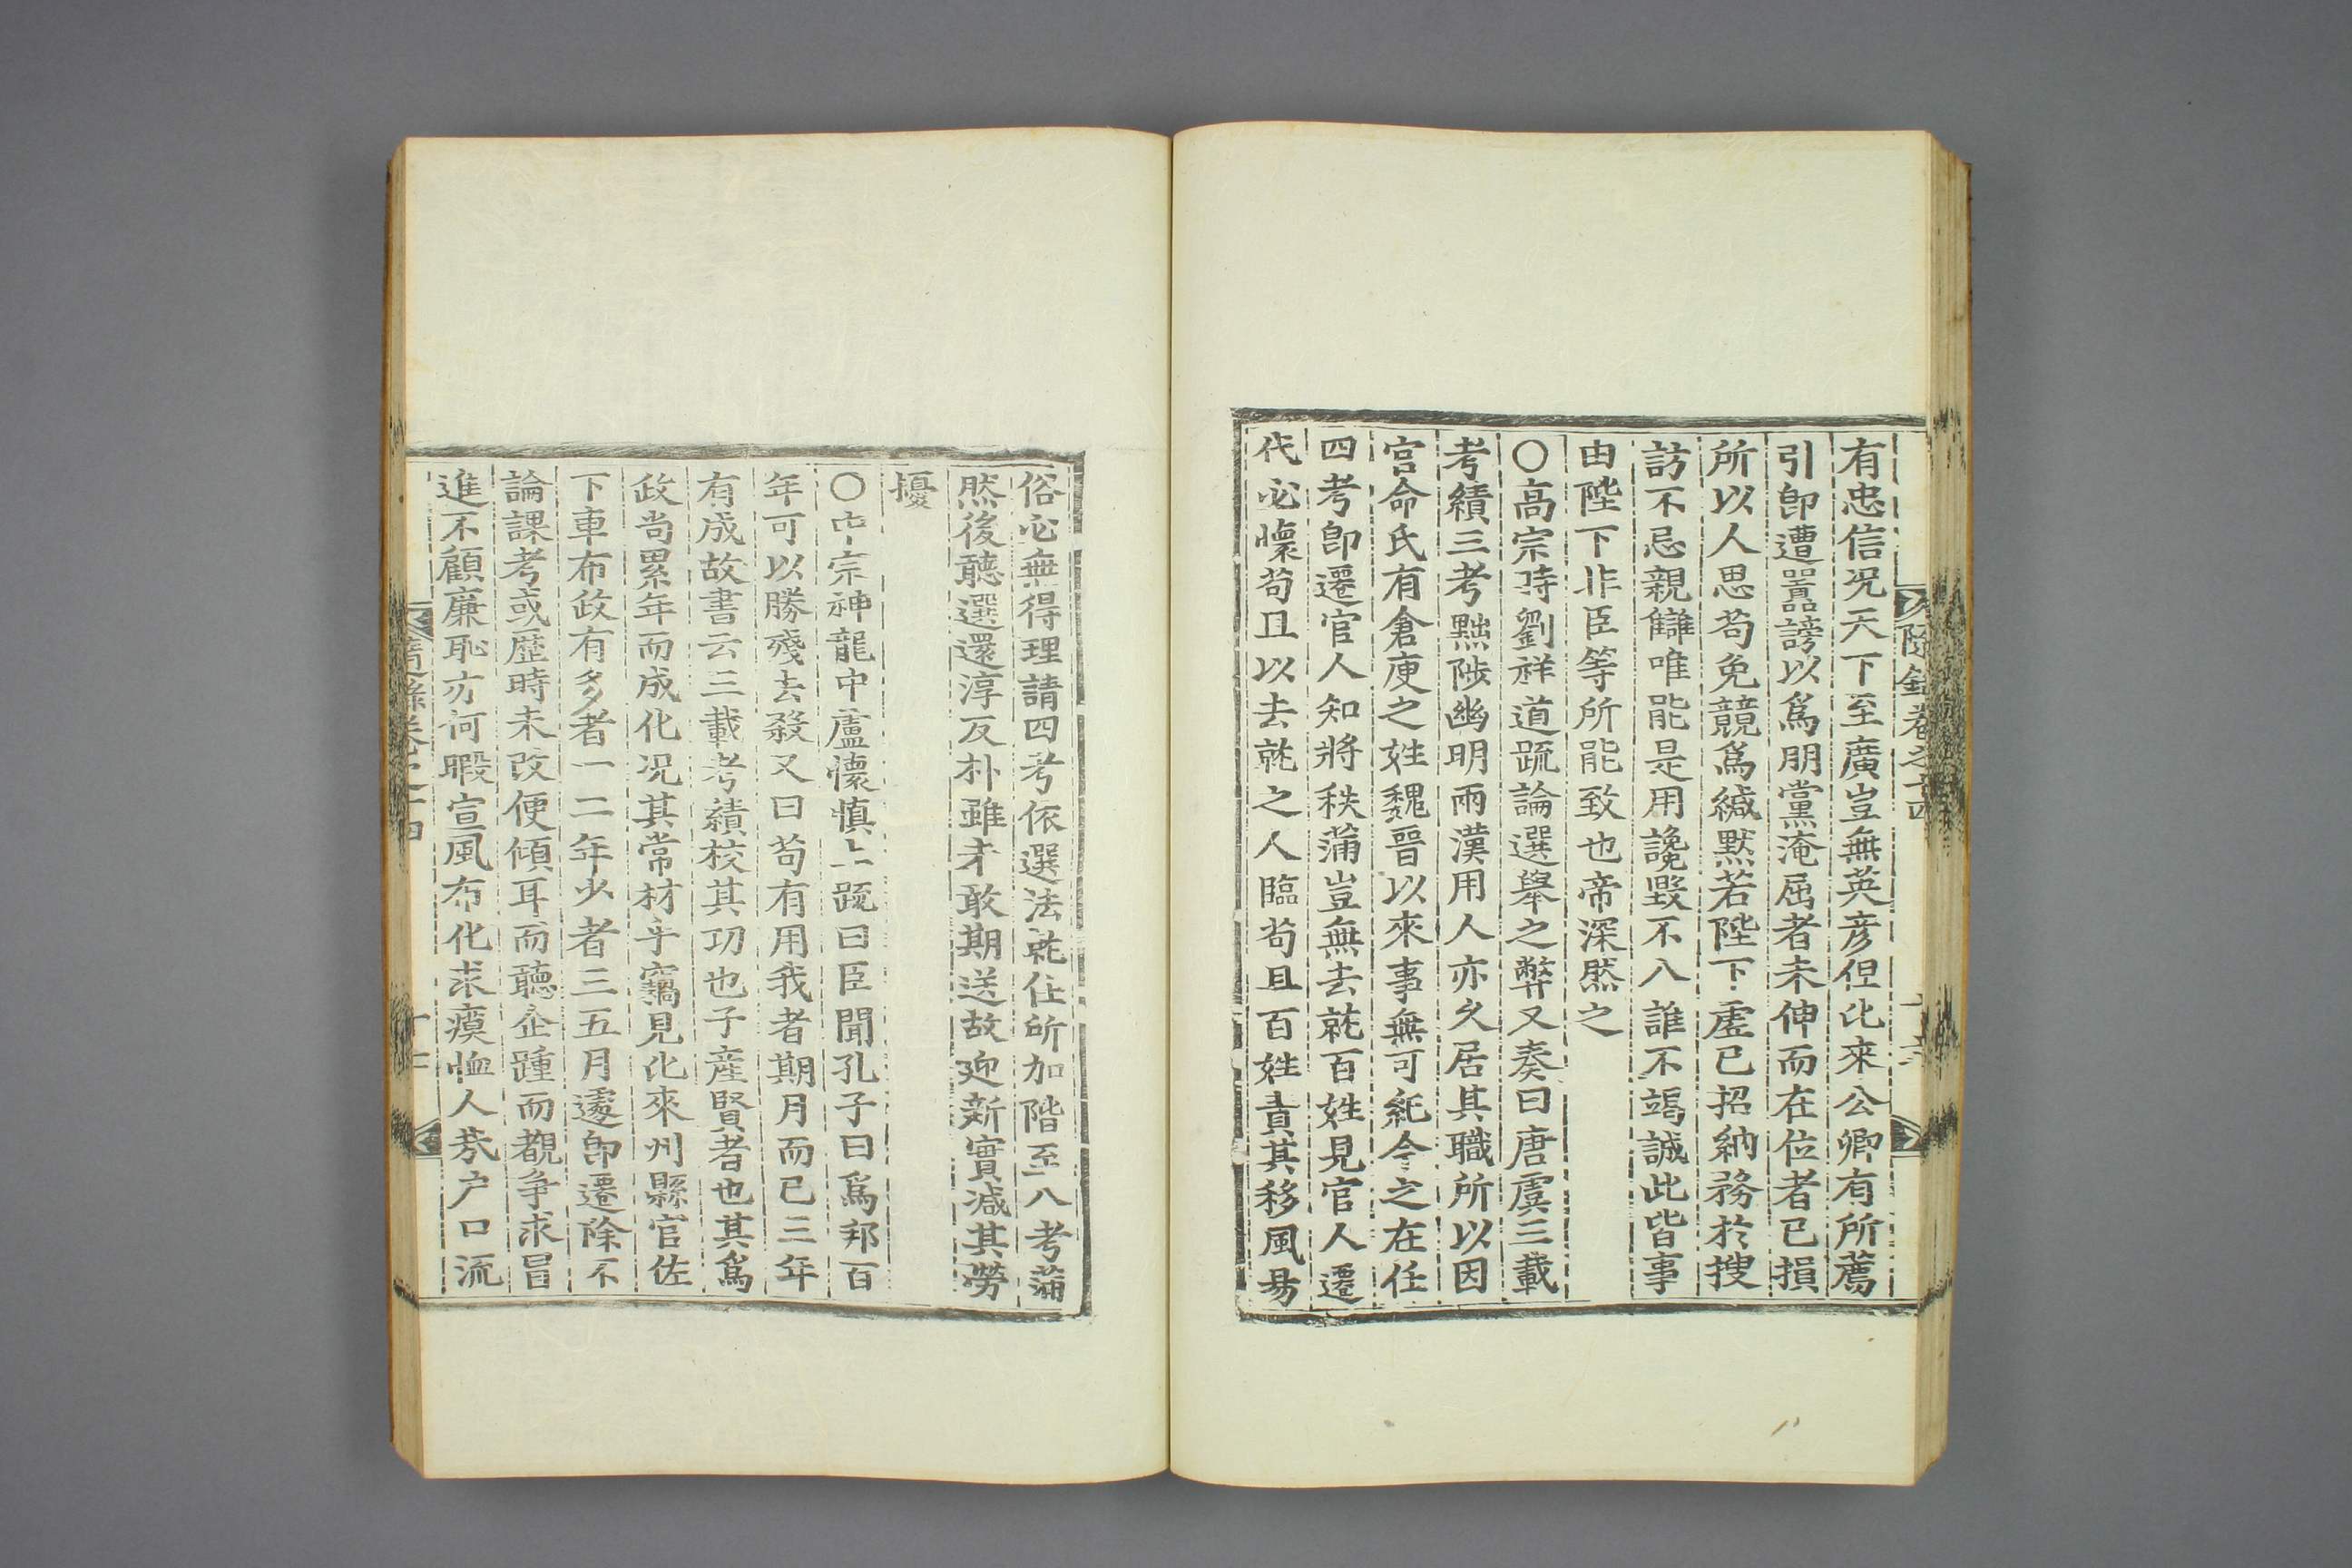 有忠信况天下至廣豈無英彦但比來公卿有所薦
引卽遭囂謗以爲朋黨淹屈者未伸而在位者已損
所以人思苟免競爲緘默若陛下虛已招納務於搜
訪不忌親讎唯能是用讒毀不入誰不竭誠此皆事
由陛下非臣等所能致也帝深然之
○高宗時劉祥道䟽論選舉之弊又奏曰唐虞三載
考績三考黜陟幽明兩漢用人亦久居其職所以因
官命氏有倉庾之姓魏晉以來事無可紀今之在任
四考卽遷官人知將秩滿豈無去就百姓見官人遷
代必懷苟且以去就之人臨苟且百姓責其移風易
俗必無得理請四考依選法就任所加階至八考滿
然後聽選還淳反朴雖未敢期送故迎新實减其勞
擾
○中宗神龍中盧懷慎上䟽曰臣聞孔子曰爲邦百
年可以勝殘去殺又曰苟有用我者期月而已三年
有成故書云三載考績校其功也子産賢者也其爲
政尚累年而成化况其常材乎竊見比來州縣官佐
下車布政有多者一二年少者三五月遽卽遷除不
論課考或歷時未改便傾耳而聽企踵而覩争求冒
進不顧廉恥亦何暇宣風布化求瘼恤人哉户口流